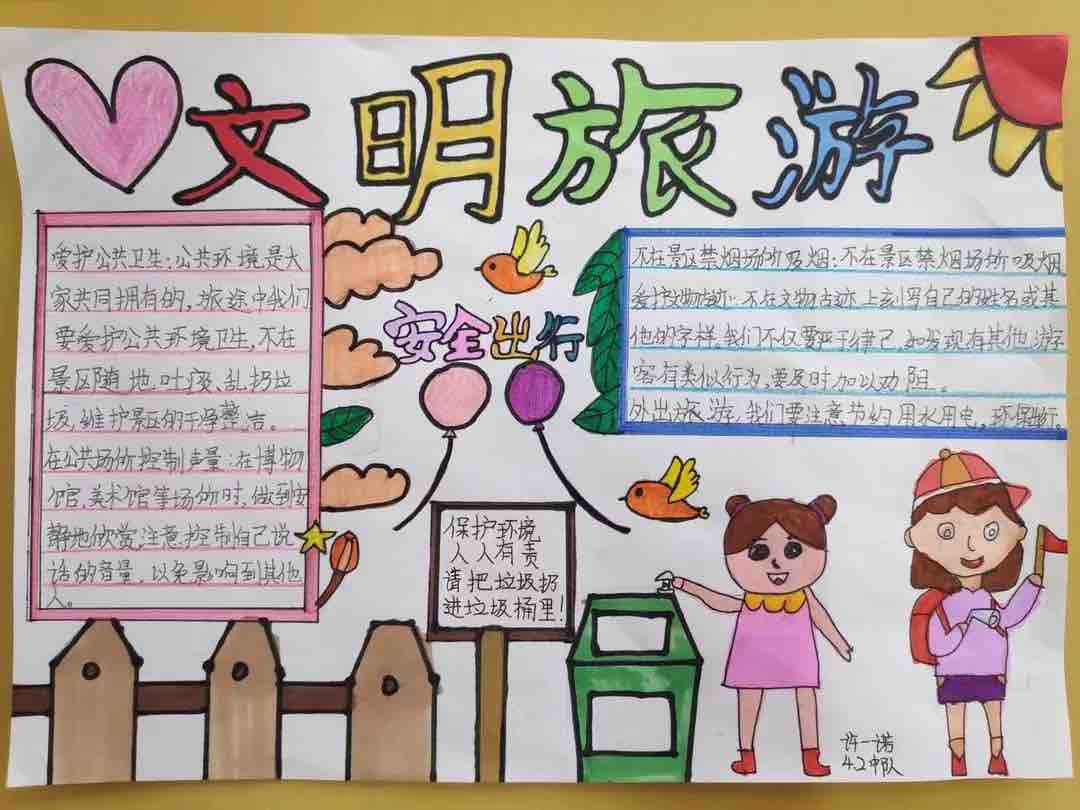 文明旅游
爱护公共卫生：公共环境是大
家共同拥有的，旅途中我们
要爱护公共环境卫生，不在
景区随地吐痰、乱扔垃
圾，维护景区的干净整洁。
在公共场所控制声量：在博物
馆、美术馆等场所时，做到安
静地欣赏，注意控制自己说
话的音量，以免影响到其他
人。
安全出行
不在景区禁烟场所吸烟：不在景区禁烟场所吸烟
爱护文物古迹：不在文物古迹上刻写自己的姓名或其
他的字样，我们不仅要严于律己，如发现有其他游
客有类似行为，要及时加以劝阻。
外出旅游，我们要注意节约用水用电，环保出行。
保护环境
人人有责
请把垃圾扔
进垃圾桶里！
许一诺
4.2中队